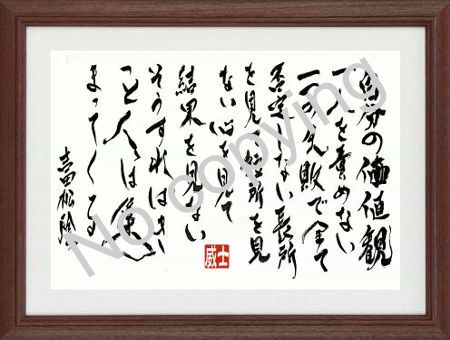 自分の価値観
で人を責めない
一つの失敗で全て
否定しない長所
を見て短所を見
ない心を見て
結果を見ない
そうすればき
っと人は集
まってくる
吉田松陰
威士
No copying